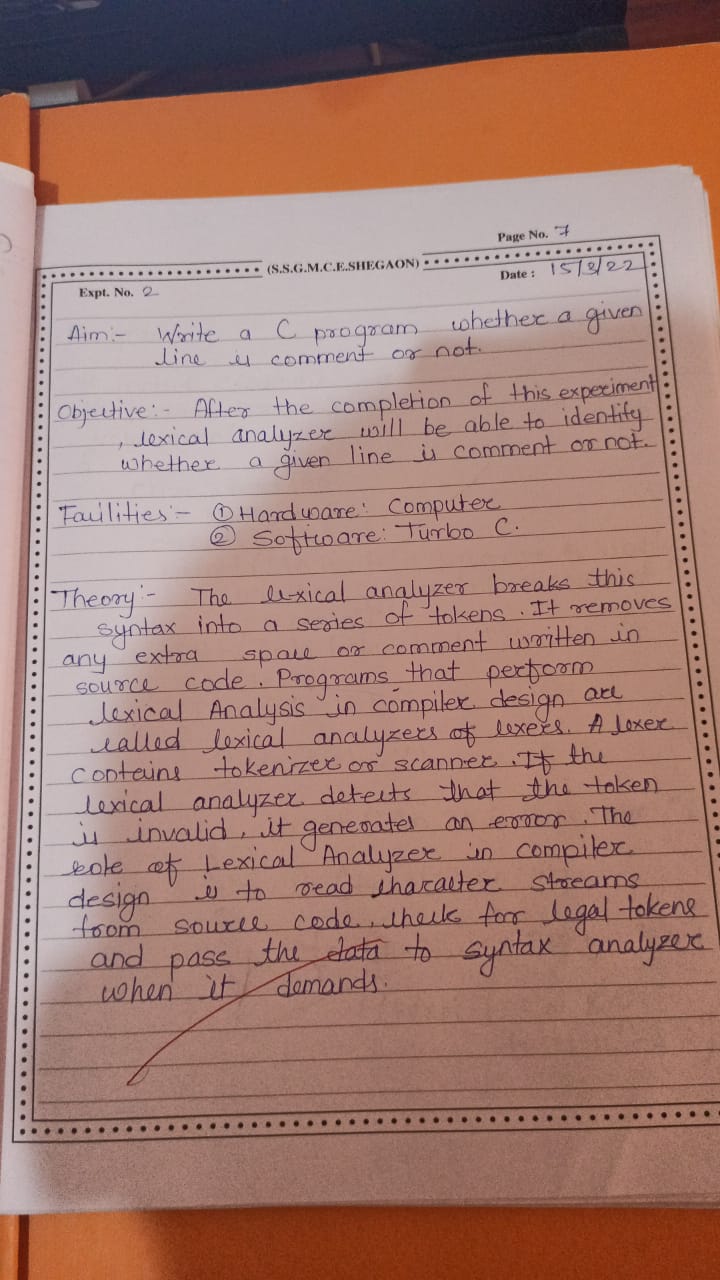 Page No. 7
(S.S.G.M.C.E.SHEGAON)
Expt. No. 2
Date : 15/3/22
Aim:- Write a C program whether a given
line is comment or not.
Objective:- After the completion of this experiment
, lexical analyzer will be able to identify
whether a given line is comment or not.
Facilities:- ① Hardware: Computer
② Software: Turbo C.
Theory:- The lexical analyzer breaks this
syntax into a series of tokens. It removes
any extra space or comment written in
source code. Programs that perform
lexical Analysis in compiler design are
called lexical analyzers of lexers. A lexer
contains tokenizer or scanner. If the
lexical analyzer detects that the token
is invalid, it generates an error. The
role of Lexical Analyzer in compiler
design is to read character streams
from source code, check for legal tokens
and pass the data to syntax analyzer
when it demands.